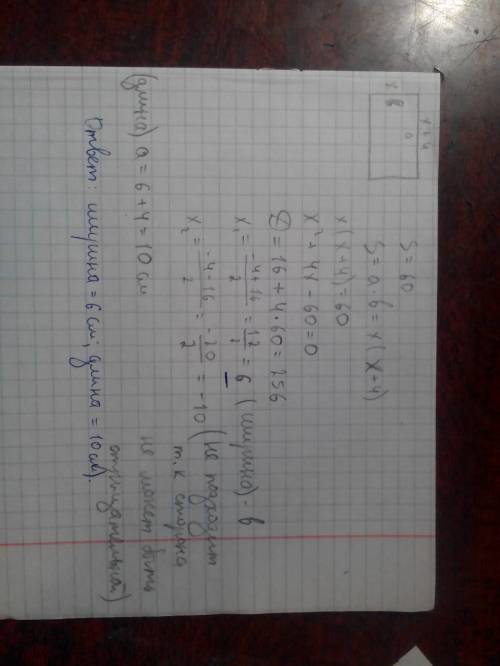 x+4
a
x
в
S=60
S=a·в=x(x+4)
x(x+4)=60
x²+4x-60=0
D=16+4·60=256
x₁=(-4+16)/2=12/2=6 (ширина)-в
x₂=(-4-16)/2=-20/2=-10 (не подходит
т.к сторона
не может быть
отрицательной)
(длина) a=6+4=10 см
Ответ: ширина=6 см; длина=10 см).